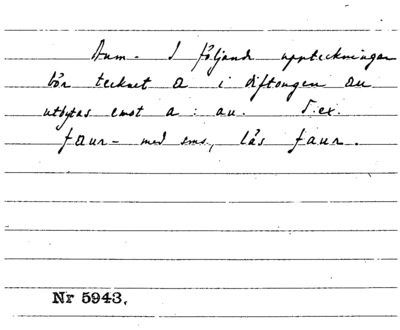 Anm. I följande uppteckningar
bör tecknet a i diftongen au
utbytas emot a : au. T.ex.
faur- med sms., läs faur.
Nr 5943.